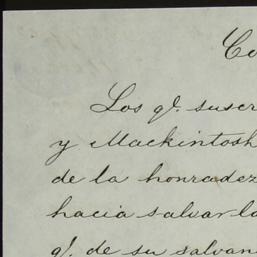 Co
Los qᵉ. suscr
y Mackintosh
de la honradez
hacia salvar lo
qᵉ. de su salvan